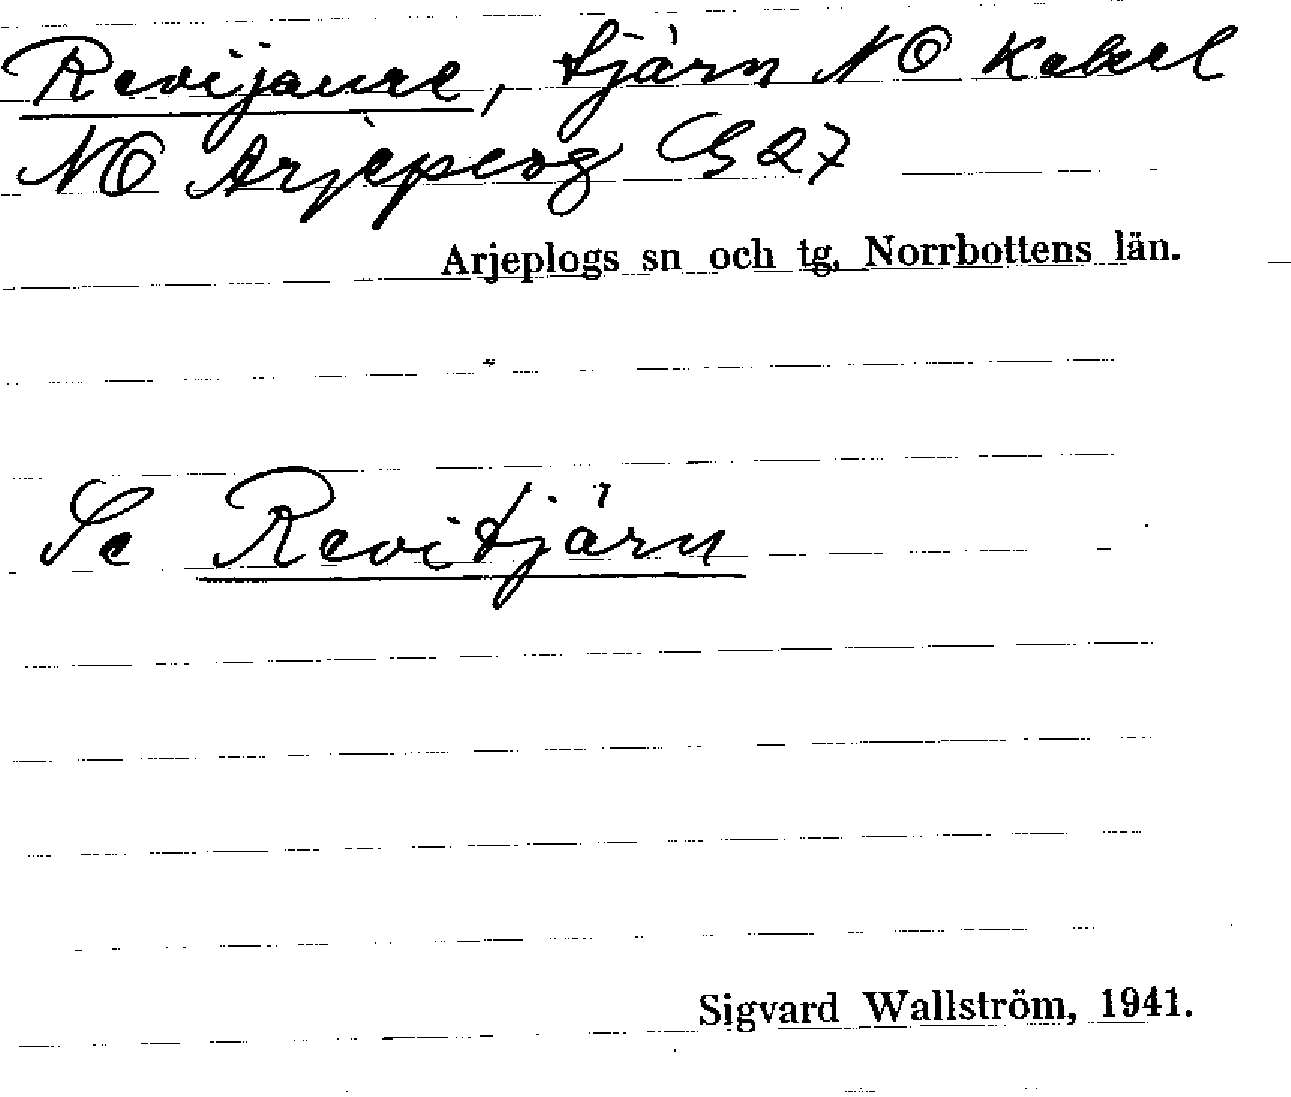 Revijaure, tjärn NO Kakel
NO Arjeplog G 27
Arjeplogs sn och tg, Norrbottens län.
Se Revitjärn
Sigvard Wallström, 1941.